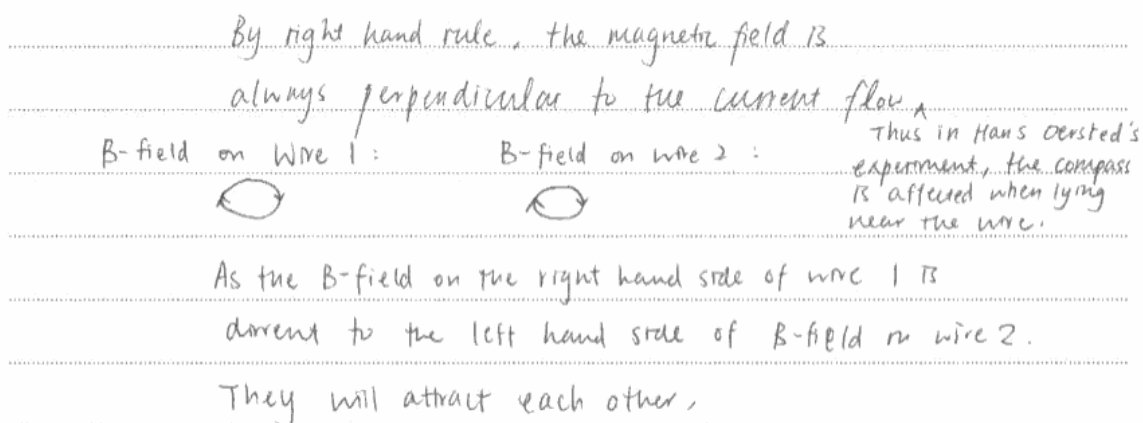 By right hand rule, the magnetic field is
always perpendicular to the current flow ^
Thus in Hans Oersted's
experiment, the compass
is affected when lying
near the wire.
B-field on Wire 1 :
B-field on wire 2 :
As the B-field on the right hand side of wire 1 is
to the left hand side of B-field on wire 2.
They will attract each other,